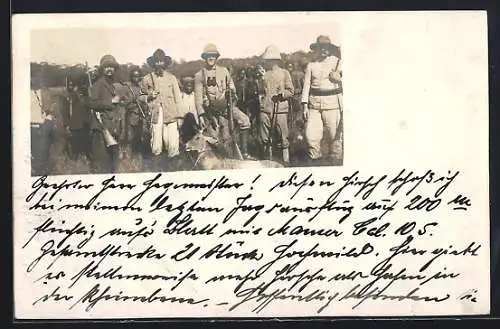 Geehrter Herr Hegemeister! Diesen Hirsch schoß ich
bei meinem letzten Jagdausflug auf 200 m
flüchtig aufs Blatt mit Mauser Cal. 10,5.
Gesamtstrecke 21 Stück Hochwild. Hier giebt
es stellenweise mehr Hirsche als Hasen in
der Rheinebene. – Hoffentlich befinden